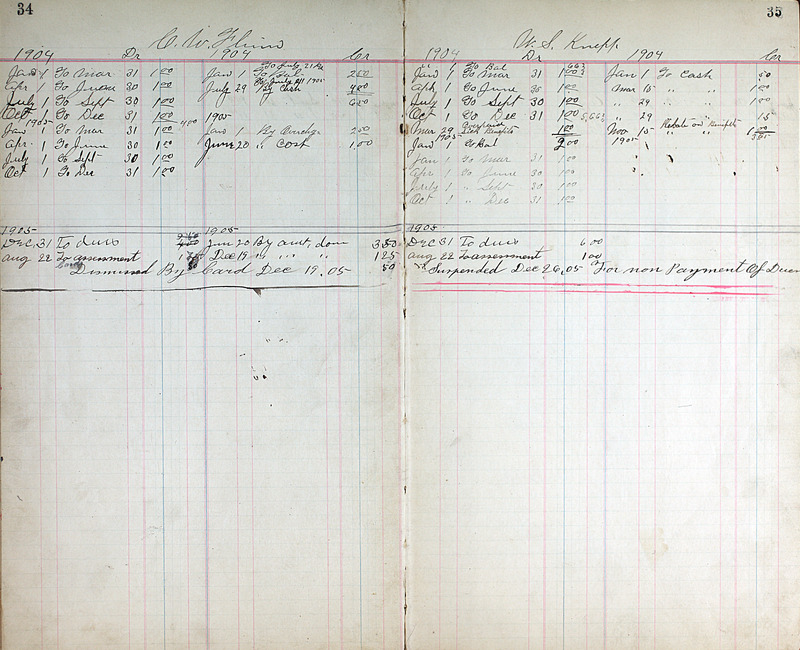 34
C. W. Flinn
1904 Dr 1904 Cr
Jan 1 To Mar 31 1 00 Jan 1 To Bal 200
Apr 1 To June 30 1 00 July 29 By Cash
July 1 To Sept 30 1 00 600
Oct 1 To Dec 31 1 00 400 1905
1905
Jan 1 To Mar 31 1 00 Jan 1 By Overchg 200
Apr 1 To June 30 1 00 June 20 " Cash 1,00
July 1 To Sept 30 1 00
Oct 1 To Dec 31 1 00
1905 1905
Dec, 31 To dues 400 Jun 20 By amt, down 350
Aug 22 To assessment Dec 19 " " " 125
Dismissed By Card Dec 19, 05 50
35
W. S. Knepp
1904 Dr 1904 Cr
" 1 To Bal 662
Jan 1 To Mar 31 1 00 Jan 1 To Cash 50
Apr 1 To June 30 1 00 Mar 15 " " 1 00
July 1 To Sept 30 1 00 " 29 " " 1 00
Oct 1 To Dec 31 1 00 5,662 " 29 15
Mar 29 Sick Benefits 1 00 Nov 15 Rebate on Benefits
1905
Jan 1 To Bal 2 00 1905 365
Jan 1 To Mar 31 1 00
Apr 1 To June 30 1 00
July 1 " Sept 30 1 00
Oct 1 " Dec 31 1 00
1905
Dec, 31 To dues 6 00
Aug 22 To assessment 1 00
Suspended Dec 26, 05 For non Payment Of Dues